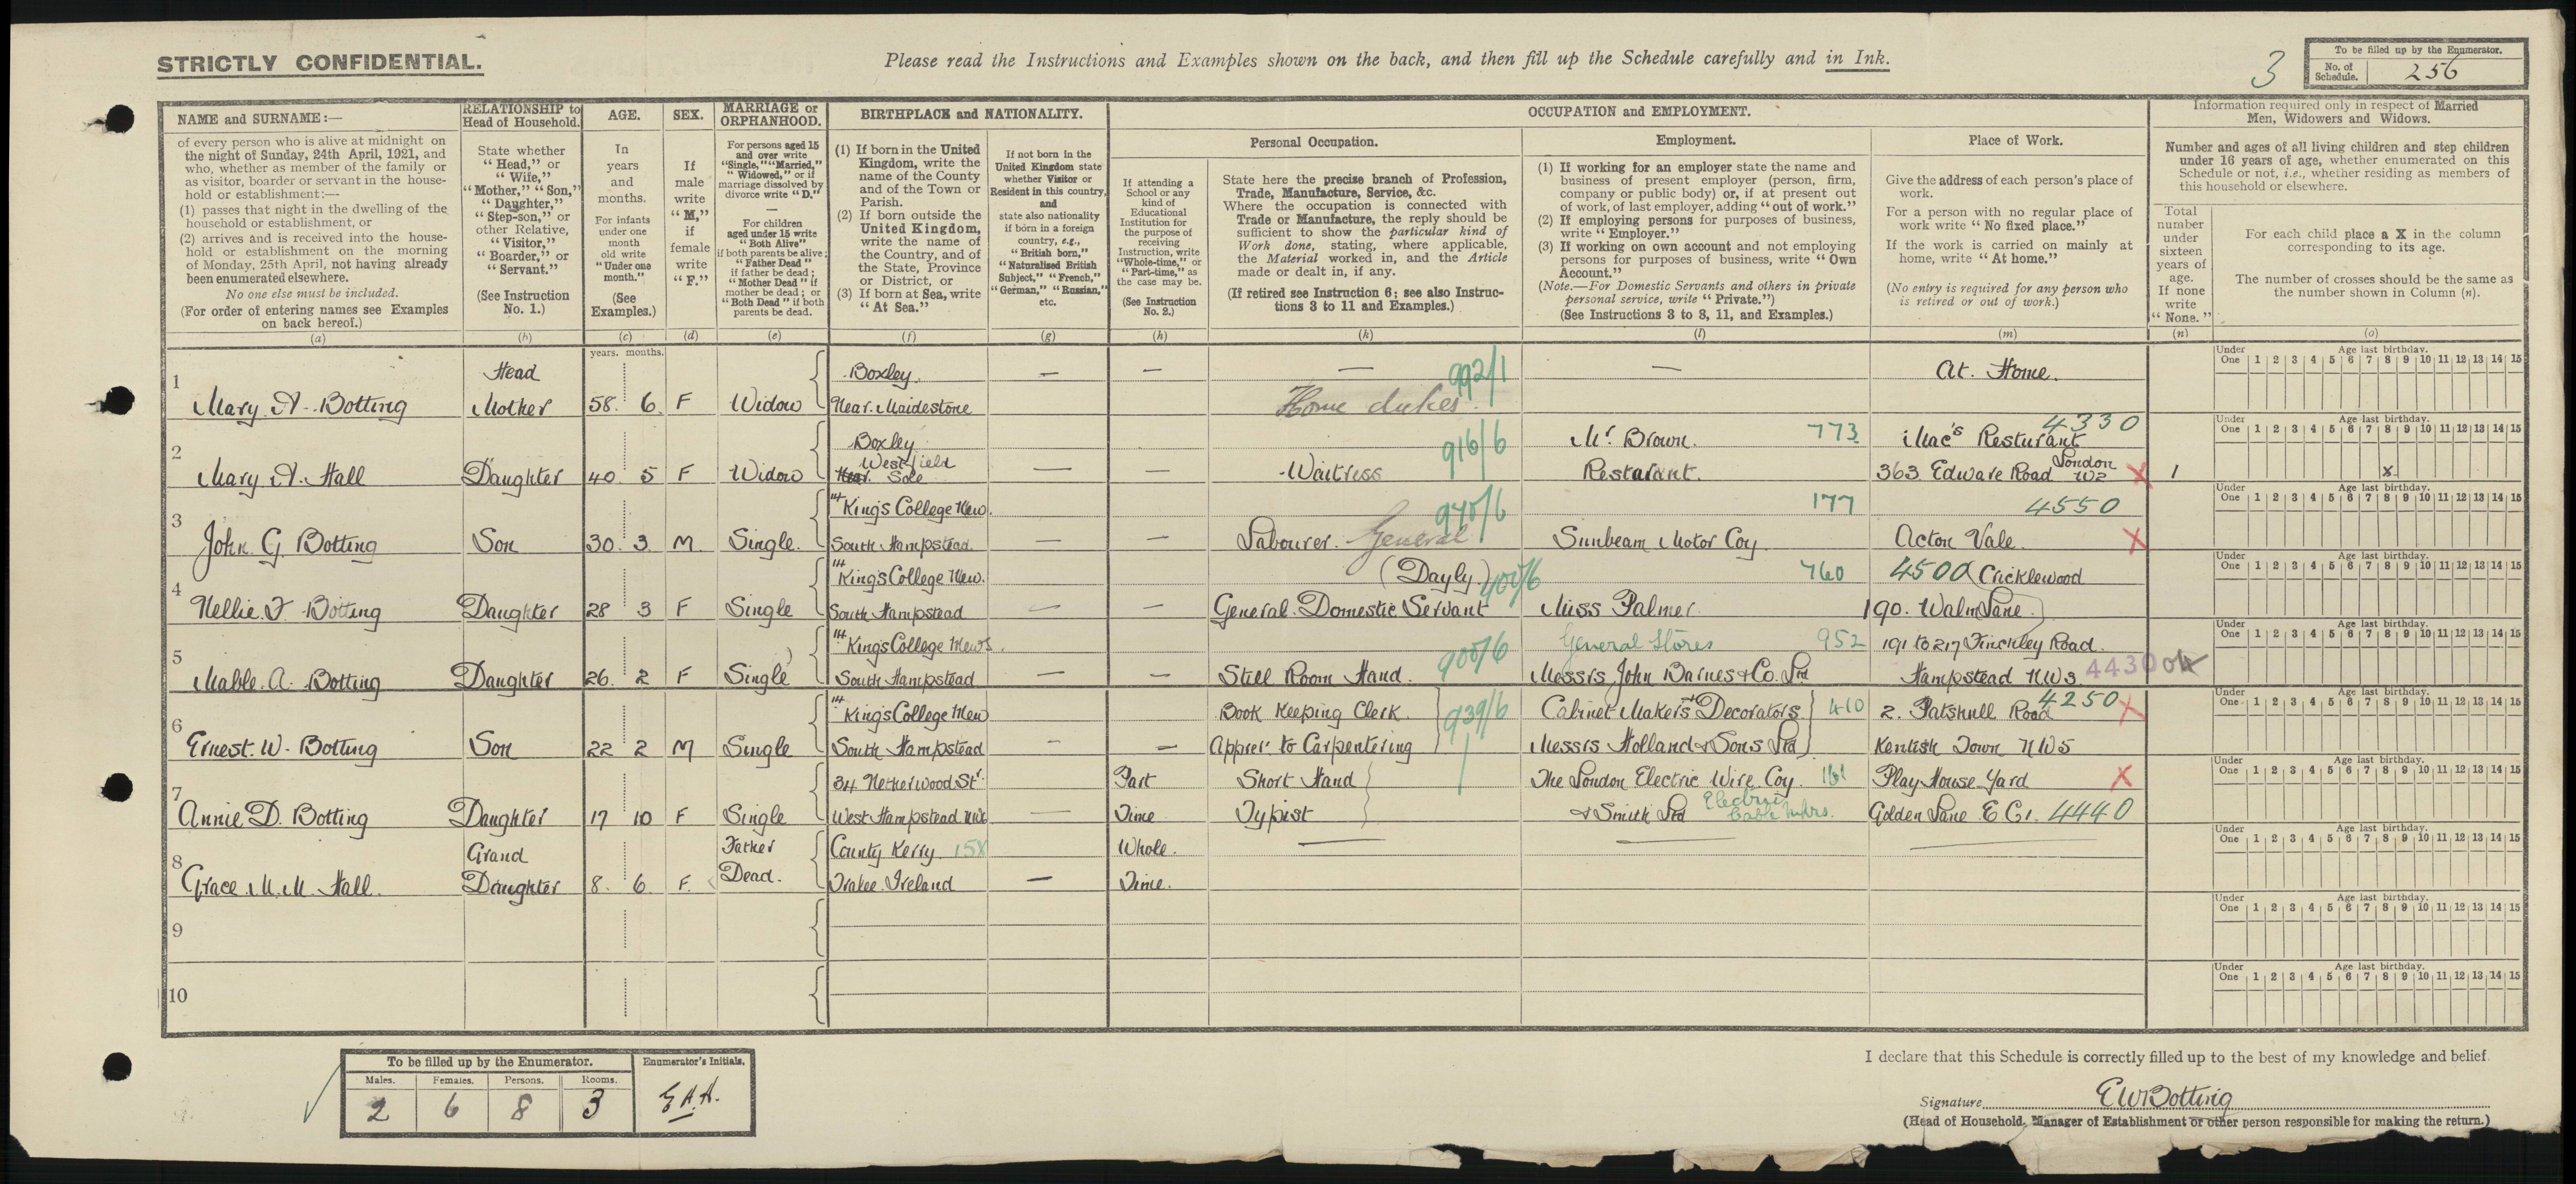 STRICTLY CONFIDENTIAL.
Please read the Instructions and Examples shown on the back, and then fill up the Schedule carefully and in Ink.
3
To be filled up by the Enumerator.
No. of Schedule. 256
NAME and SURNAME:—
of every person who is alive at midnight on
the night of Sunday, 24th April, 1921, and
who, whether as member of the family or
as visitor, boarder or servant in the house-
hold or establishment:—
(1) passes that night in the dwelling of the
household or establishment, or
(2) arrives and is received into the house-
hold or establishment on the morning
of Monday, 25th April, not having already
been enumerated elsewhere.
No one else must be included.
(For order of entering names see Examples
on back hereof.)
(a)
RELATIONSHIP to
Head of Household.
State whether
"Head," or
"Wife,"
"Mother," "Son,"
"Daughter,"
"Step-son," or
other Relative,
"Visitor,"
"Boarder," or
"Servant."
(See Instruction
No. 1.)
(b)
AGE.
In
years
and
months.
For infants
under one
month
old write
"Under one
month."
(See
Examples.)
(c)
years. months.
SEX.
If
male
write
"M,"
if
female
write
"F."
(d)
MARRIAGE or
ORPHANHOOD.
For persons aged 15
and over write
"Single," "Married,"
"Widowed," or if
marriage dissolved by
divorce write "D."
—
For children
aged under 15 write
"Both Alive"
if both parents be alive;
"Father Dead"
if father be dead;
"Mother Dead" if
mother be dead; or
"Both Dead" if both
parents be dead.
(e)
BIRTHPLACE and NATIONALITY.
(1) If born in the United
Kingdom, write the
name of the County
and of the Town or
Parish.
(2) If born outside the
United Kingdom,
write the name of
the Country, and of
the State, Province
or District, or
(3) If born at Sea, write
"At Sea."
(f)
If not born in the
United Kingdom state
whether Visitor or
Resident in this country,
and
state also nationality
if born in a foreign
country, e.g.,
"British born,"
"Naturalised British
Subject," "French,"
"German," "Russian,"
etc.
(g)
OCCUPATION and EMPLOYMENT.
Personal Occupation.
If attending a
School or any
kind of
Educational
Institution for
the purpose of
receiving
Instruction, write
"Whole-time," or
"Part-time," as
the case may be.
(See Instruction
No. 2.)
(h)
State here the precise branch of Profession,
Trade, Manufacture, Service, &c.
Where the occupation is connected with
Trade or Manufacture, the reply should be
sufficient to show the particular kind of
Work done, stating, where applicable,
the Material worked in, and the Article
made or dealt in, if any.
(If retired see Instruction 6; see also Instruc-
tions 3 to 11 and Examples.)
(k)
Employment.
(1) If working for an employer state the name and
business of present employer (person, firm,
company or public body) or, if at present out
of work, of last employer, adding "out of work."
(2) If employing persons for purposes of business,
write "Employer."
(3) If working on own account and not employing
persons for purposes of business, write "Own
Account."
(Note.—For Domestic Servants and others in private
personal service, write "Private.")
(See Instructions 3 to 8, 11, and Examples.)
(l)
Place of Work.
Give the address of each person's place of
work.
For a person with no regular place of
work write "No fixed place."
If the work is carried on mainly at
home, write "At home."
(No entry is required for any person who
is retired or out of work.)
(m)
Information required only in respect of Married
Men, Widowers and Widows.
Number and ages of all living children and step children
under 16 years of age, whether enumerated on this
Schedule or not, i.e., whether residing as members of
this household or elsewhere.
Total
number
under
sixteen
years of
age.
If none
write
"None."
(n)
For each child place a X in the column
corresponding to its age.
The number of crosses should be the same as
the number shown in Column (n).
(o)
Under One Age last birthday. 1 2 3 4 5 6 7 8 9 10 11 12 13 14 15
1 Head Boxley. — — — 992/1 — At. Home.
Mary. A. Botting Mother 58. 6. F Widow Near. Maidestone Home duties.
Under One Age last birthday. 1 2 3 4 5 6 7 8 9 10 11 12 13 14 15
2 Boxley. 916/6 Mr Brown. 773 Mac's Resturant 4330
Mary A. Hall Daughter 40 5 F Widow Westfield Near. Sole — — Waitriss Restarant. 363 Edware Road London W2 X 1 x
Under One Age last birthday. 1 2 3 4 5 6 7 8 9 10 11 12 13 14 15
3 14 King's College Mew. 970/6 177 4550
John. G. Botting Son 30. 3. M. Single. South Hampstead — — Labourer. General Sunbeam Motor Coy Acton Vale. X
Under One Age last birthday. 1 2 3 4 5 6 7 8 9 10 11 12 13 14 15
4 14 King's College Mew. (Dayly) 900/6 760 4500 Cricklewood
Nellie. F. Botting Daughter 28 3 F Single South Hampstead — — General. Domestic Servant Miss Palmer. 190. Walm Lane.
Under One Age last birthday. 1 2 3 4 5 6 7 8 9 10 11 12 13 14 15
5 14 King's College Mews. 900/6 General Stores 952 191 to 217 Finckley Road.
Mable. A. Botting Daughter 26. 2 F Single South Hampstead — — Still Room Hand. Messrs John Barnes & Co. Ltd Hampstead NW3. 4430
Under One Age last birthday. 1 2 3 4 5 6 7 8 9 10 11 12 13 14 15
6 14 King's College Mew Book Keeping Clerk. 939/6 Cabinet Makers & Decorators 410 2. Patshull Road 4250 X
Ernest. W. Botting Son 22 2 M Single South Hampstead — — Appren. to Carpentering Messrs Holland & Sons Ltd Kentish Town NW5
Under One Age last birthday. 1 2 3 4 5 6 7 8 9 10 11 12 13 14 15
7 34 Netherwood Str. Part Short Hand The London Electric Wire Coy. 161 Play House Yard X
Annie D. Botting Daughter 17 10 F Single West Hampstead NW — Time Typist & Smith Ltd Electric Cable Mfrs. Golden Lane. E.C1. 4440
Under One Age last birthday. 1 2 3 4 5 6 7 8 9 10 11 12 13 14 15
8 Grand Father County Kerry 158 Whole. — — —
Grace. M. M. Hall. Daughter 8. 6 F. Dead. Tralee. Ireland — Time.
Under One Age last birthday. 1 2 3 4 5 6 7 8 9 10 11 12 13 14 15
9
Under One Age last birthday. 1 2 3 4 5 6 7 8 9 10 11 12 13 14 15
10
To be filled up by the Enumerator.
Males. Females. Persons. Rooms.
2 6 8 3
Enumerator's Initials.
E.A.A.
I declare that this Schedule is correctly filled up to the best of my knowledge and belief.
Signature E W Botting
(Head of Household, Manager of Establishment or other person responsible for making the return.)